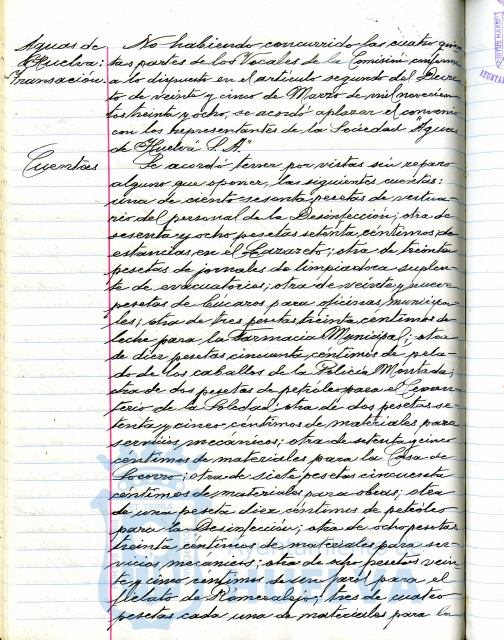 Aguas de
Huelva:
Transación.
No habiendo concurrido las cuatro quin
tas partes de los Vocales de la Comisión conforme
a lo dispuesto en el artículo segundo del Decre
to de veinte y cinco de Marzo de mil novecien
tos treinta y ocho, se acordó aplazar el convenio
con los representantes de la Sociedad "Aguas
de Huelva S.A."
Cuentas
Se acordó tener por vistas sin reparo
alguno que oponer, las siguientes cuentas:
una de ciento sesenta pesetas de vestua
rio del personal de la Desinfección; otra de
sesenta y ocho pesetas setenta céntimos de
estancias en el Lazareto; otra de treinta
pesetas de jornales de limpiadora suplen
te de evacuatorios; otra de veinte y nueve
pesetas de búcaros para oficinas municipa
les; otra de tres pesetas treinta céntimos de
leche para la Farmacia Municipal; otra
de diez pesetas cincuenta céntimos de pela-
do de los caballos de la Policía Montada;
otra de dos pesetas de petróleo para el Cemen
terio de la Soledad; otra de dos pesetas se
tenta y cinco céntimos de materiales para
servicios mecánicos; otra de setenta y cinco
céntimos de materiales para la Casa de
Socorro; otra de siete pesetas cincuenta
céntimos de materiales para obras; otra
de una peseta diez céntimos de petróleo
para la Desinfección; otra de ocho pesetas
treinta céntimos de materiales para ser-
vicios mecánicos; otra de ocho pesetas vein
te y cinco céntimos de un farol para el
fielato de Romeralejo; tres de cuatro
pesetas cada una de materiales para la